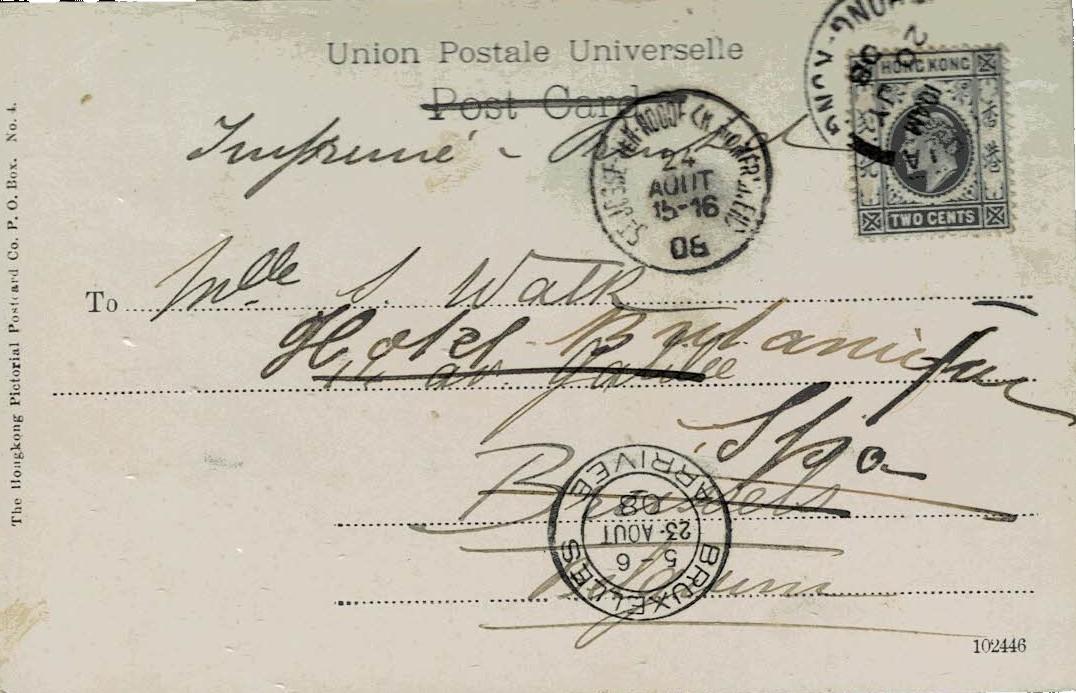 Union Postale Universelle
Post Card
Imprimé -
HONG KONG
TWO CENTS
24
AOUT
15-16
08
To Mlle S. Walk
Hotel Britannique
11 av.
Spa
Brussels
Belgium
BRUXELLES
5-6
23-AOUT
08
ARRIVEE
The Hongkong Pictorial Postcard Co. P. O. Box. No. 4.
102446